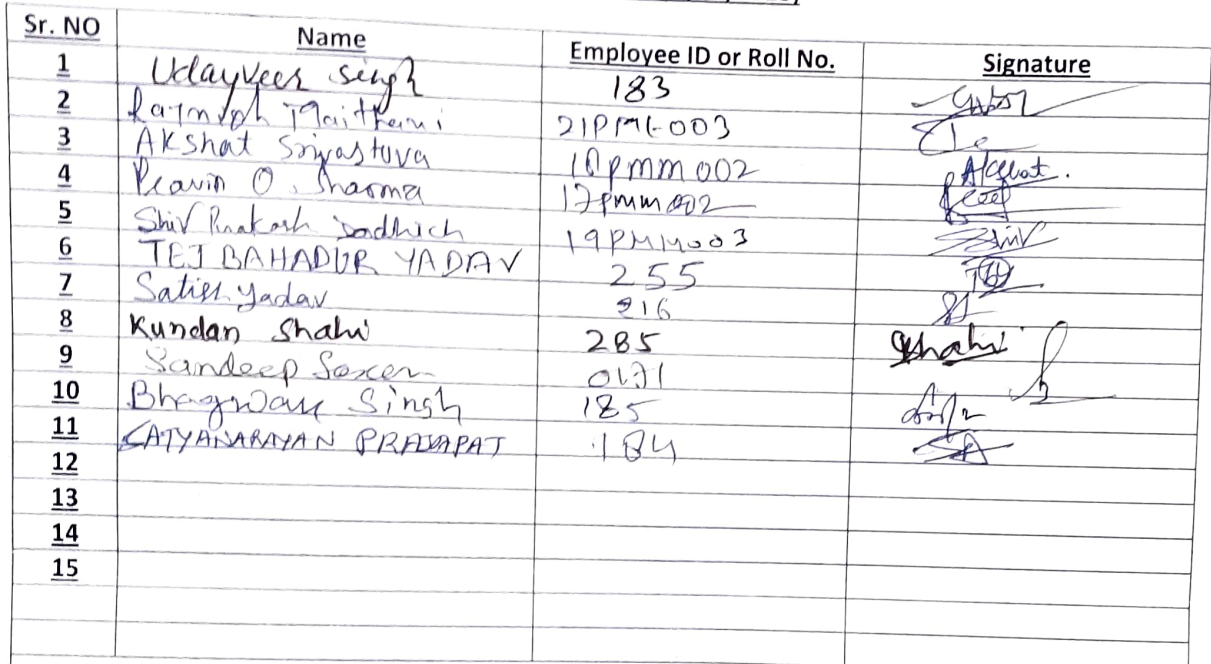 Sr. NO Name Employee ID or Roll No. Signature
1 Udayveer singh 183
2 Maithani
3 Akshat Srivastava 002
4 Pravin O. Sharma 17pmm002
5 Shiv Prakash Dadhich 19PMM003 Shiv
6 TEJ BAHADUR YADAV 255
7 Satish Yadav 216
8 Kundan Shahi 285 Shahi
9 Sandeep
10 Bhagwan Singh 185
11 SATYANARAYAN PRAJAPAT 184
12
13
14
15